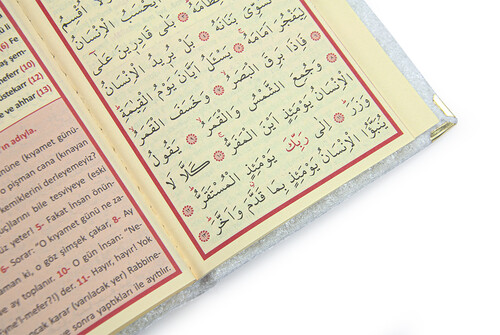 لَا اُقْسِمُ
اَيَحْسَبُ الْاِنْسَانُ
بَلٰى قَادِرِينَ عَلٰٓى
نُسَوِّىَ بَنَانَهُ بَلْ يُرِيدُ الْاِنْسَانُ
لِيَفْجُرَ اَمَامَهُ يَسْـَٔلُ اَيَّانَ يَوْمُ الْقِيٰمَةِ
فَاِذَا بَرِقَ الْبَصَرُ وَخَسَفَ الْقَمَرُ
وَجُمِعَ الشَّمْسُ وَالْقَمَرُ يَقُولُ
الْاِنْسَانُ يَوْمَئِذٍ اَيْنَ الْمَفَرُّ كَلَّا لَا
وَزَرَ اِلٰى رَبِّكَ يَوْمَئِذٍ الْمُسْتَقَرُّ
يُنَبَّؤُا الْاِنْسَانُ يَوْمَئِذٍ بِمَا قَدَّمَ وَاَخَّرَ
(6) Fe
aş şem-
meferr (10)
üstekarr (12)
e ve ahhar (13)
'ın adıyla.
nüne (kıyamet günü-
o pişman cana (kınayan
kemiklerini derleyemeyiz?
uçlarını bile tesviyeye (eski
üz yeter! 5- Fakat insan önün-
6- Sorar: "O kıyamet günü ne za-
aman ki, o göz şimşek çakar, 8- Ay
ve ay toplanır. 10- O gün insan: "Ne-
ne'l-mefer?!) der. 11- Hayır, hayır! Yok
ncak karar (varılacak yer) Rabbine-
e sonra yaptıkları ile ayıtılır.